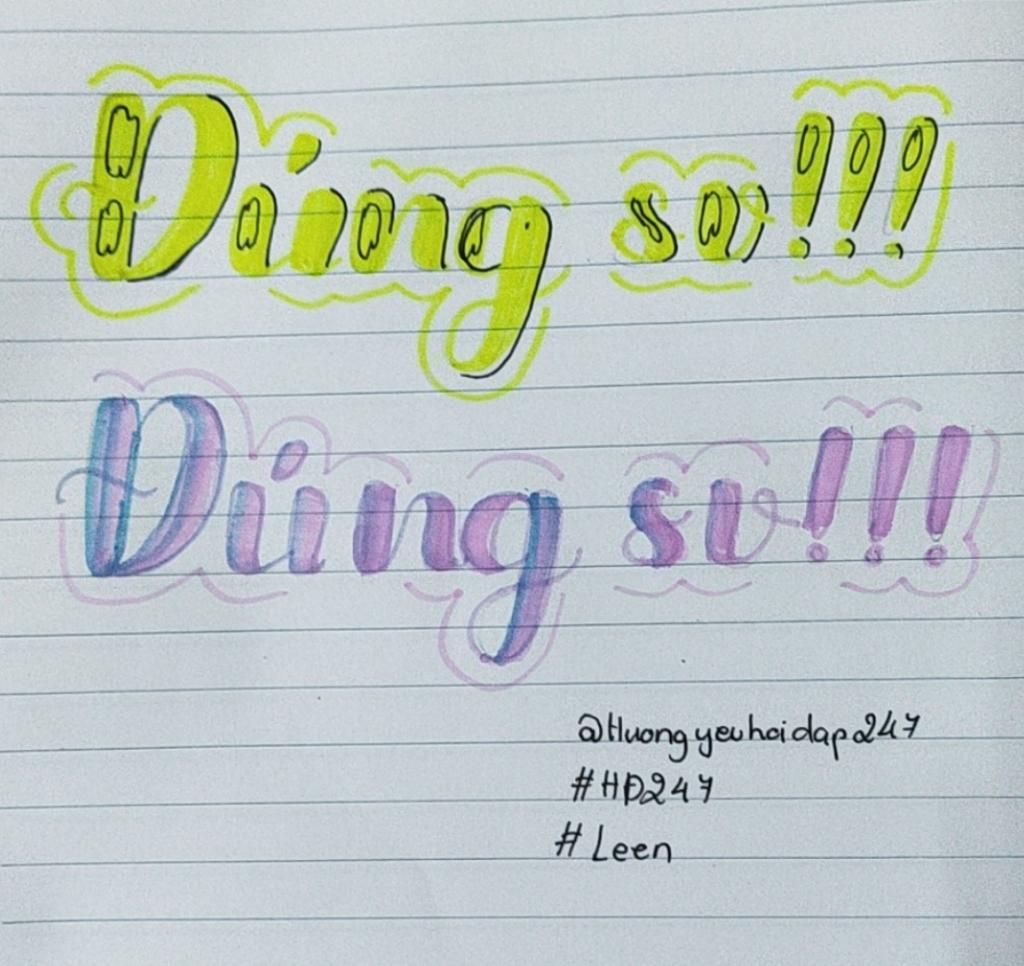 Đúng sv!!!
Đúng sv!!!
@Huongyeuhoidap247
#HĐ247
#Leen